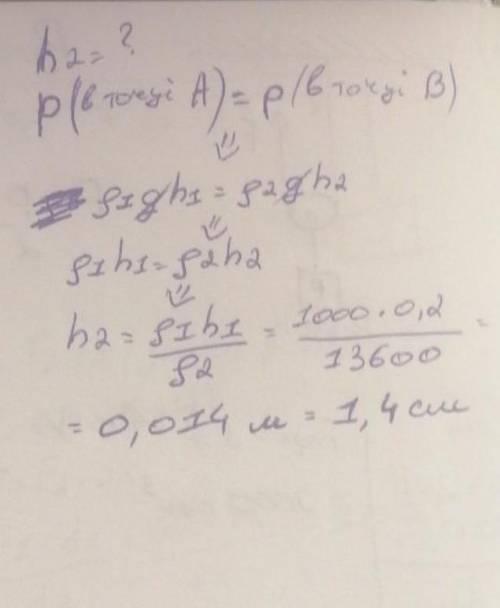 h2 = ?
p(в точці A) = p(в точці B)
⇓
ρ1gh1 = ρ2gh2
⇓
ρ1h1 = ρ2h2
⇓
h2 = ρ1h1/ρ2 = 1000·0,2/13600 =
= 0,014 м = 1,4 см